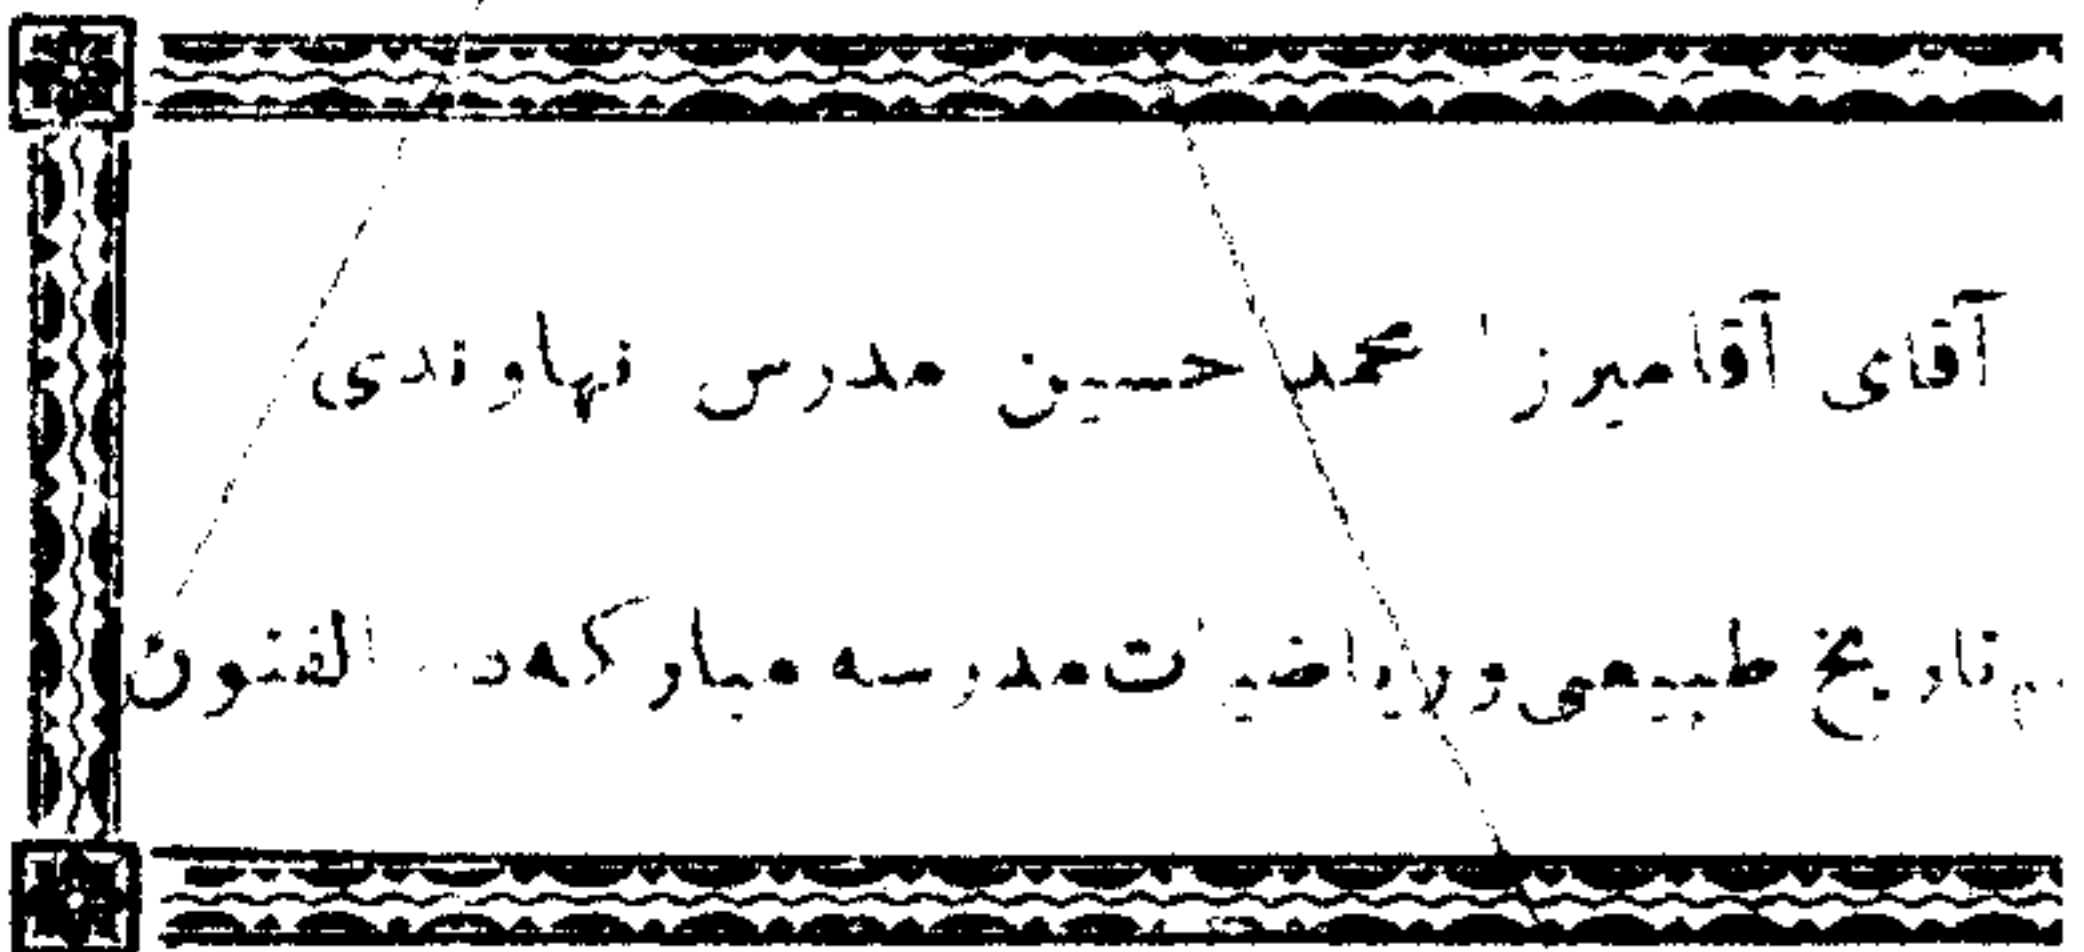 آقای آقامیرزا محمد حسین مدرس نهاوندی
تاریخ طبیعی و ریاضیات مدرسه مبارکه دارالفنون